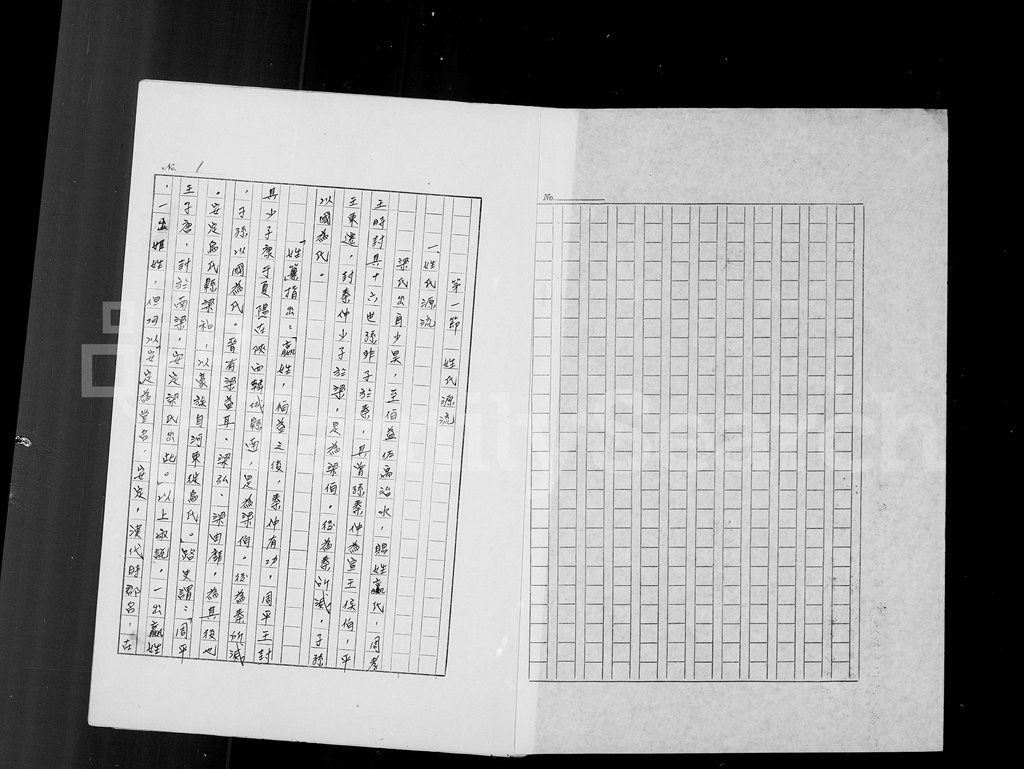 No. 1
第一節 姓氏源流
一、姓氏源流
梁氏出自少昊,至伯益佐禹治水,賜姓嬴氏,周孝
王時封其十六世孫非子於秦,其曾孫秦仲為宣王侯伯,平
王東遷,封秦仲少子於梁,是為梁伯。後為秦所滅,子孫
以國為氏。
「姓纂指出:「嬴姓,伯益之後,秦仲有功,周平王封
其少子康于夏陽在陝西韓城縣南,是為梁伯。後為秦所滅
,子孫以國為氏。晉有梁益耳、梁弘、梁由靡,為其後也
。安定烏氏縣梁和,以豪族自河東徙烏氏。路史謂:「周平
王子唐,封於南梁,安定梁氏出此。以上叙說,一出嬴姓
,一出姬姓,但均以安定為堂名,安定,漢代時郡名,在
No.